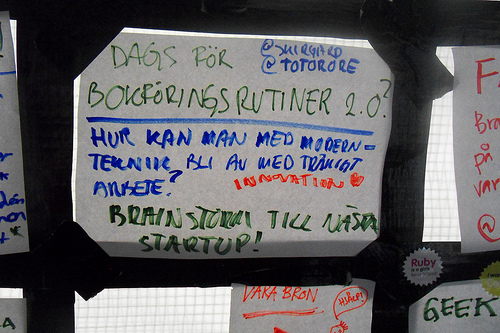 DAGS FÖR
@SKIRGARD
@TOTORORE
BOKFÖRINGSRUTINER 2.0?
HUR KAN MAN MED MODERN-
TEKNIK BLI AV MED TRÅKIGT
ARBETE?
INNOVATION
BRAINSTORM TILL NÄSTA
STARTUP!
VAKA BRON
HJÄLP!
Ruby
GEEK
F
Bra
på
var
@